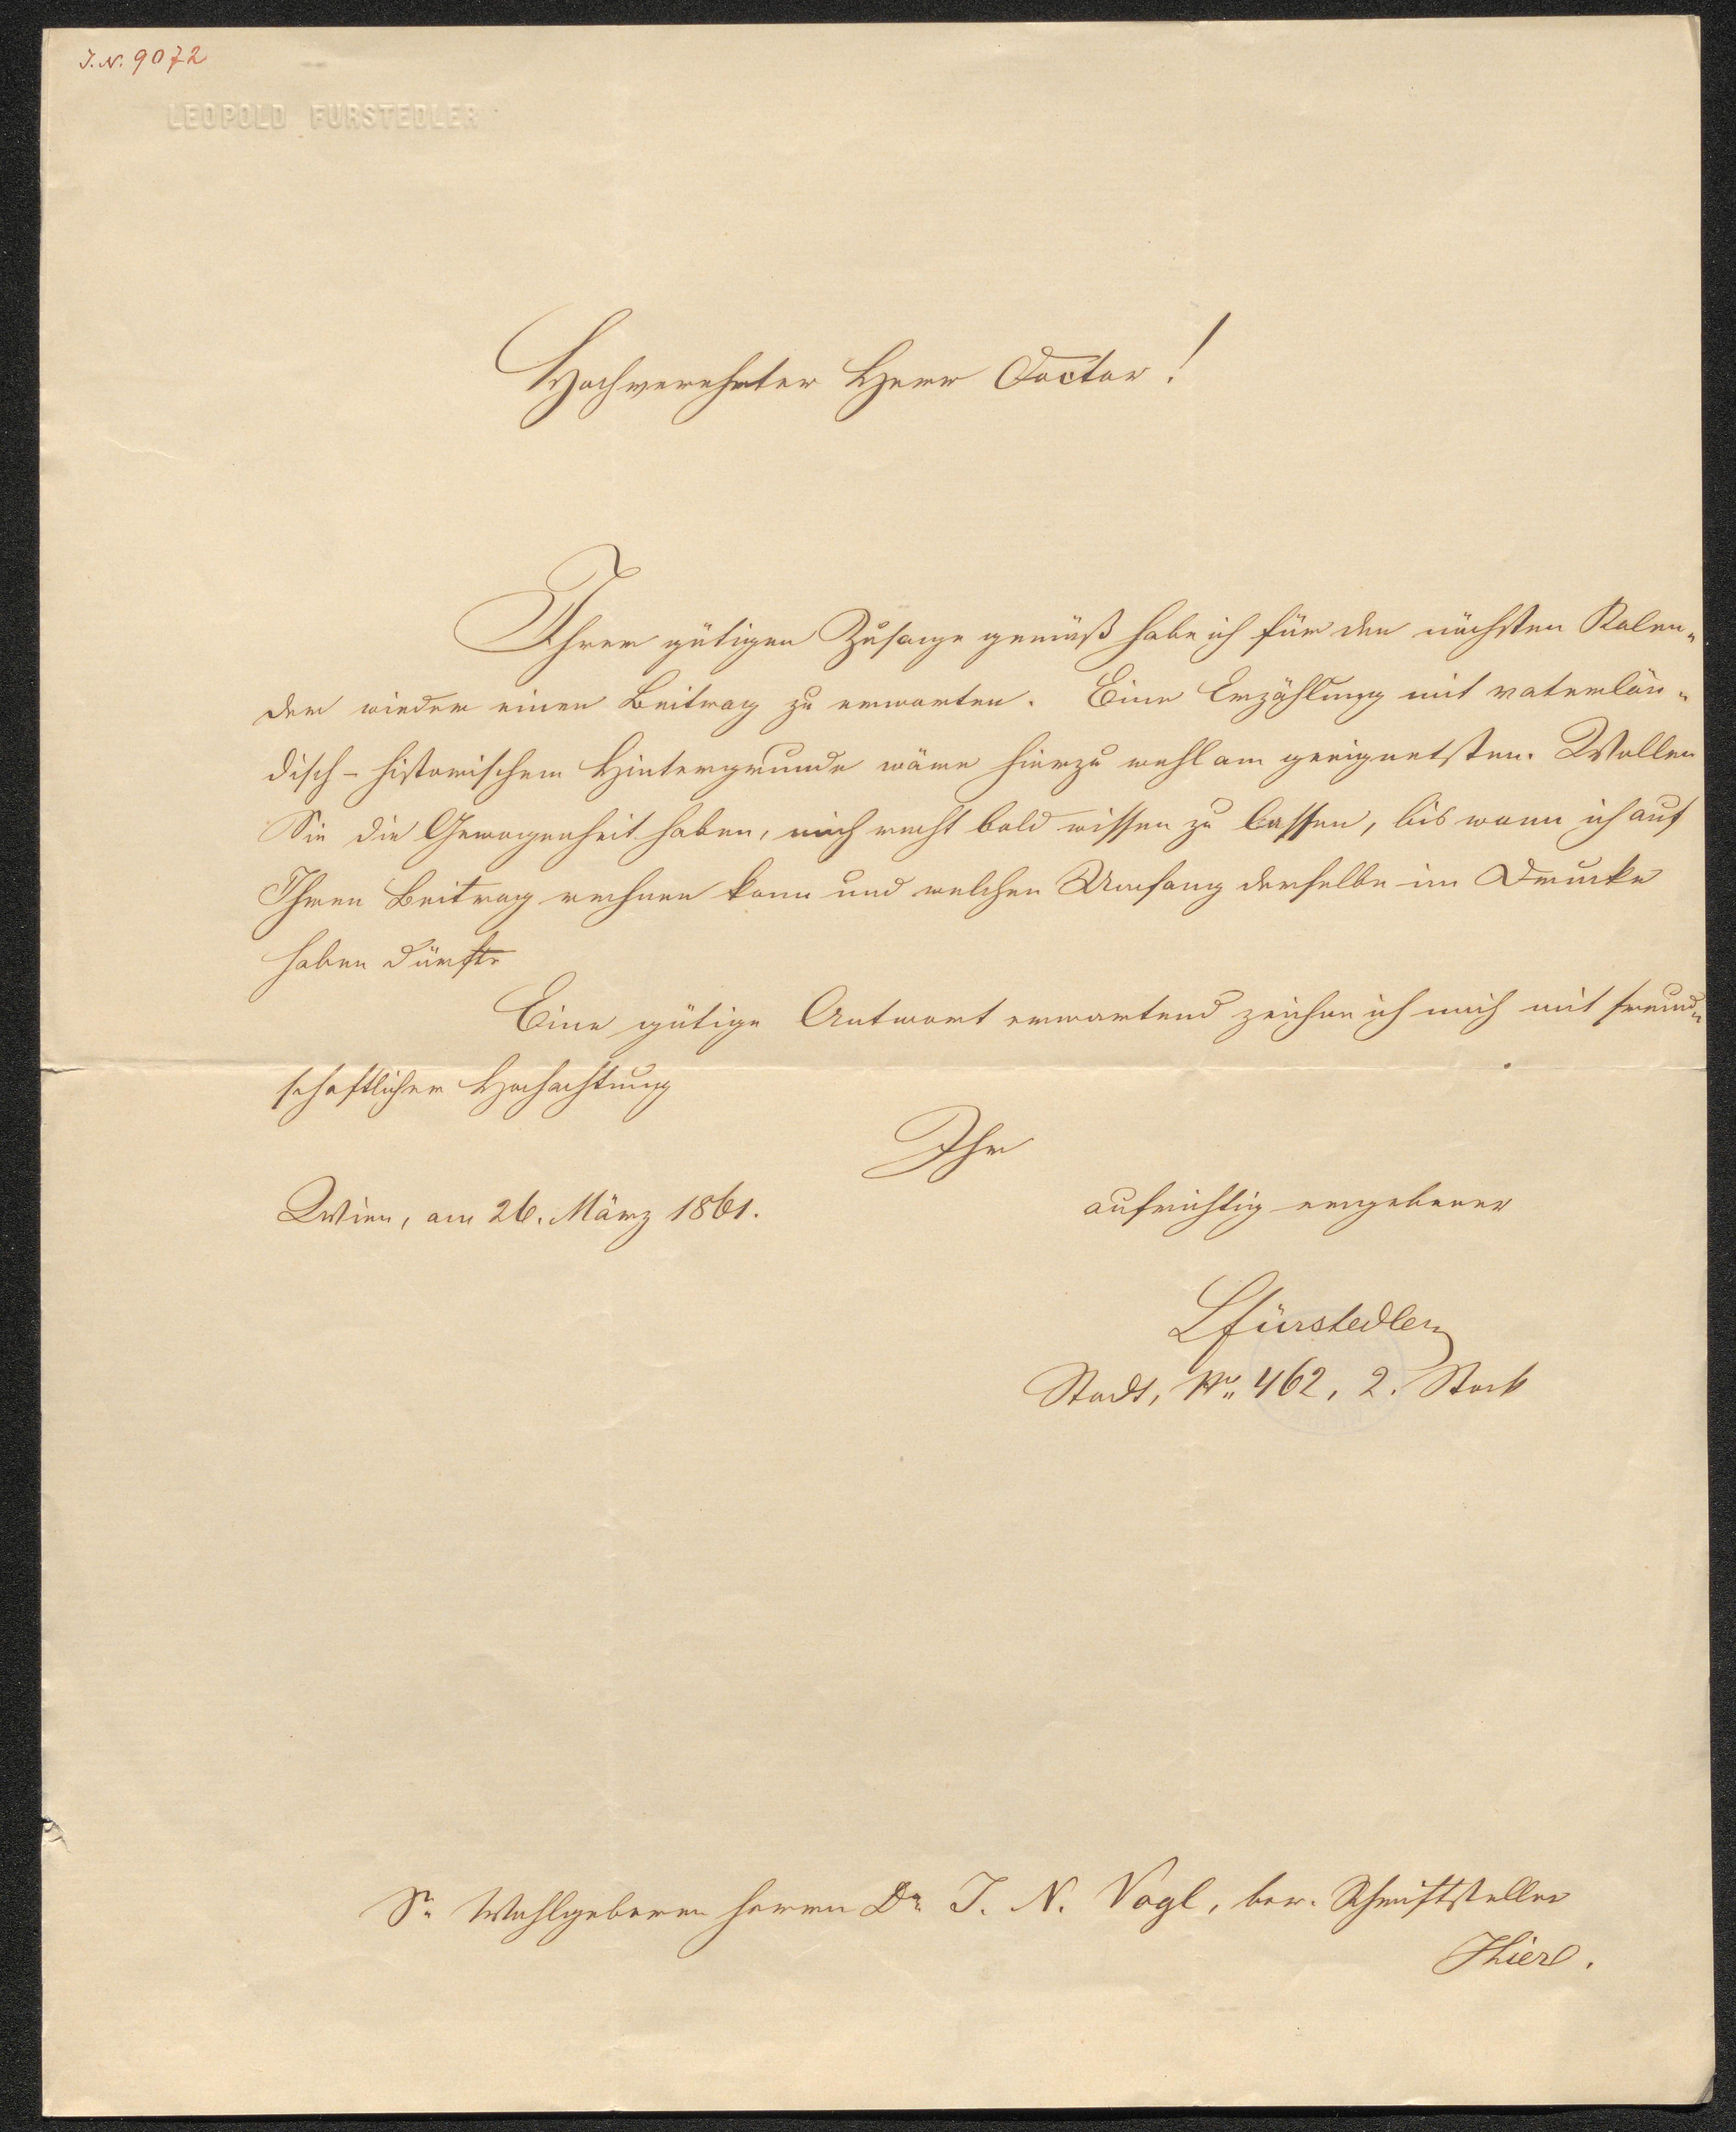 J. N. 9072
LEOPOLD FÜRSTEDLER
Hochverehrter Herr Doctor!
Ihrer gütigen Zusage gemäß habe ich für den nächsten Kalen-
der wieder einen Beitrag zu erwarten. Eine Erzählung mit vaterlän-
disch-historischem Hintergrunde wäre hierzu wohl am geeignetsten. Wollen
Sie die Gewogenheit haben, mich recht bald wissen zu lassen, bis wann ich auf
Ihren Beitrag rechnen kann und welchen Umfang derselbe im Drucke
haben dürfte
Eine gütige Antwort erwartend zeichne ich mich mit freund-
schaftlicher Hochachtung
Ihr
Wien, am 26. März 1861.
aufrichtig ergebener
LFürstedler
Stadt, No. 462, 2. Stock
Sr Wohlgeboren Herrn Dr J. N. Vogl, ber. Schriftsteller
Hier.